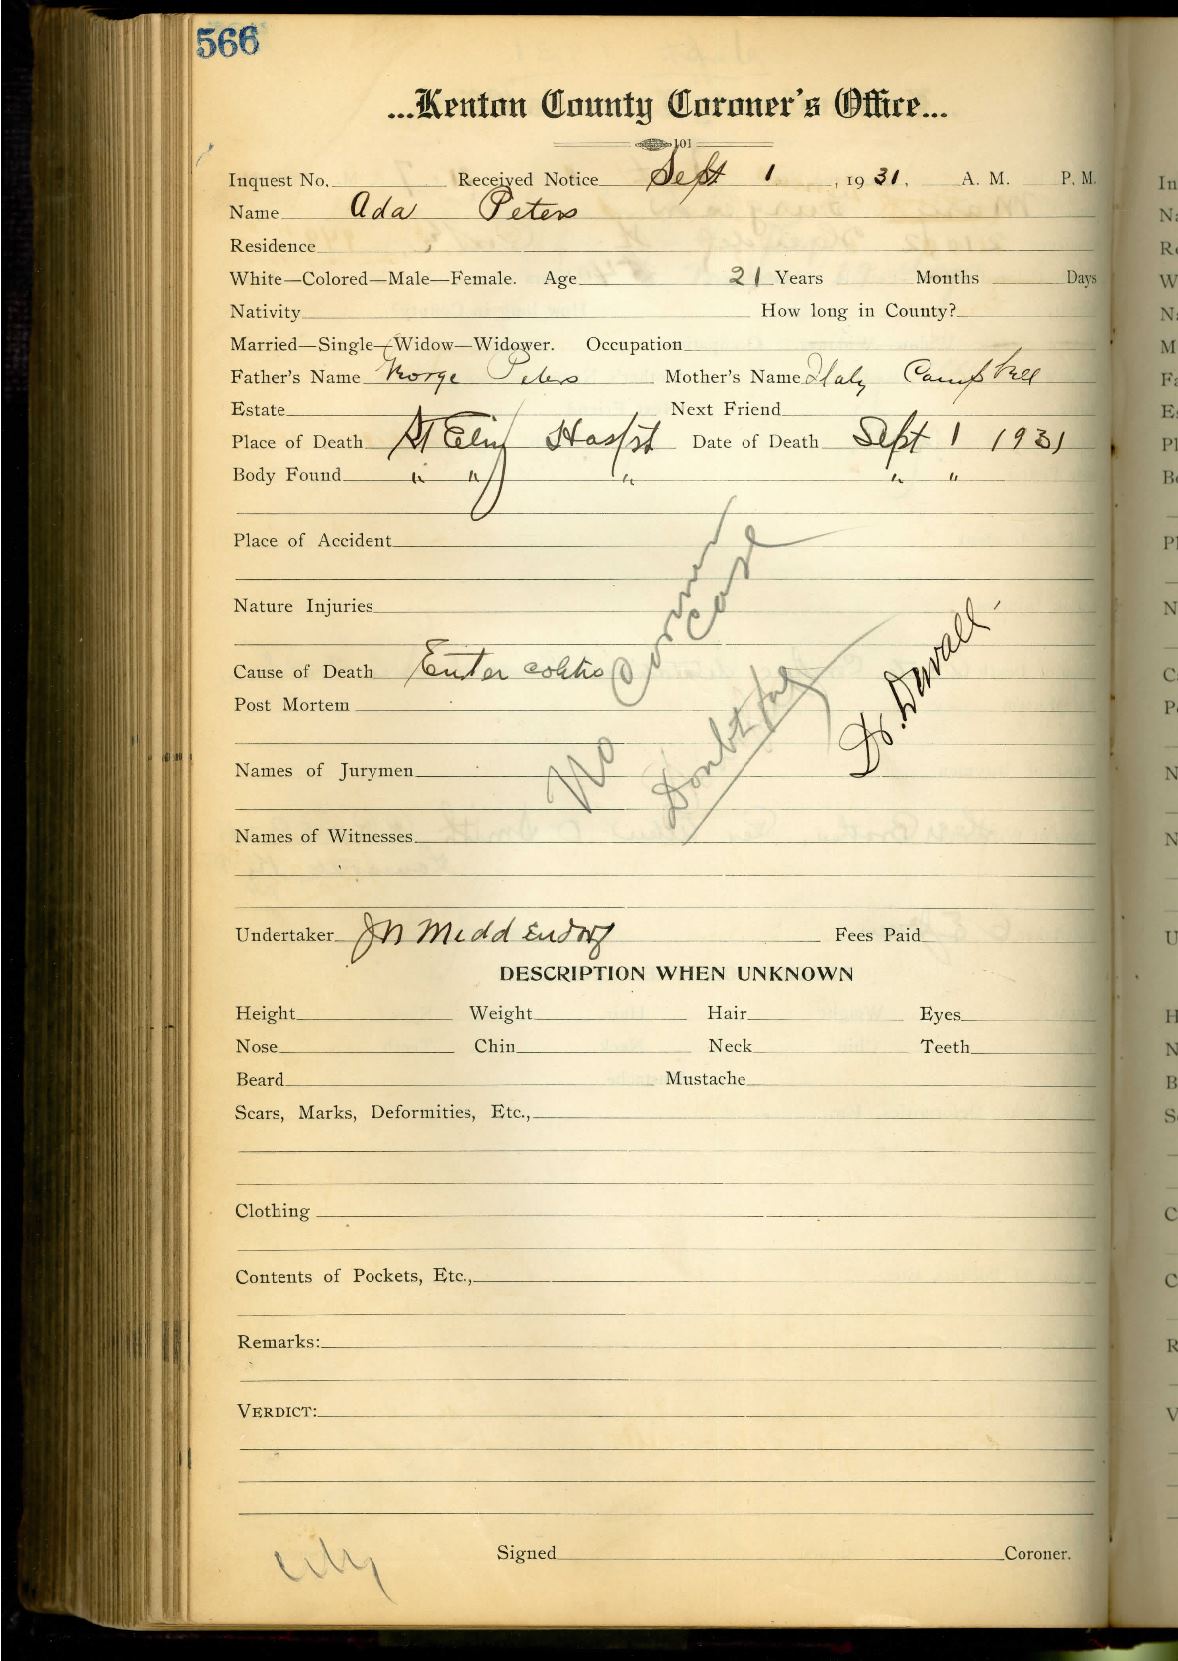 566
...Kenton County Coroner's Office...
101
Inquest No. Received Notice Sept 1, 1931, A. M. P. M.
Name Ada Peters
Residence
White—Colored—Male—Female. Age 21 Years Months Days
Nativity How long in County?
Married—Single—Widow—Widower. Occupation
Father's Name George Peters Mother's Name Campbell
Estate Next Friend
Place of Death St Eliz Hospt Date of Death Sept 1 1931
Body Found " " " " "
Place of Accident
Nature Injuries
No Coroner Case
Doubtful
Dr. Duvall
Cause of Death Enter colitis
Post Mortem
Names of Jurymen
Names of Witnesses
Undertaker JN Middendorf Fees Paid
DESCRIPTION WHEN UNKNOWN
Height Weight Hair Eyes
Nose Chin Neck Teeth
Beard Mustache
Scars, Marks, Deformities, Etc.,
Clothing
Contents of Pockets, Etc.,
Remarks:
VERDICT:
Signed Coroner.